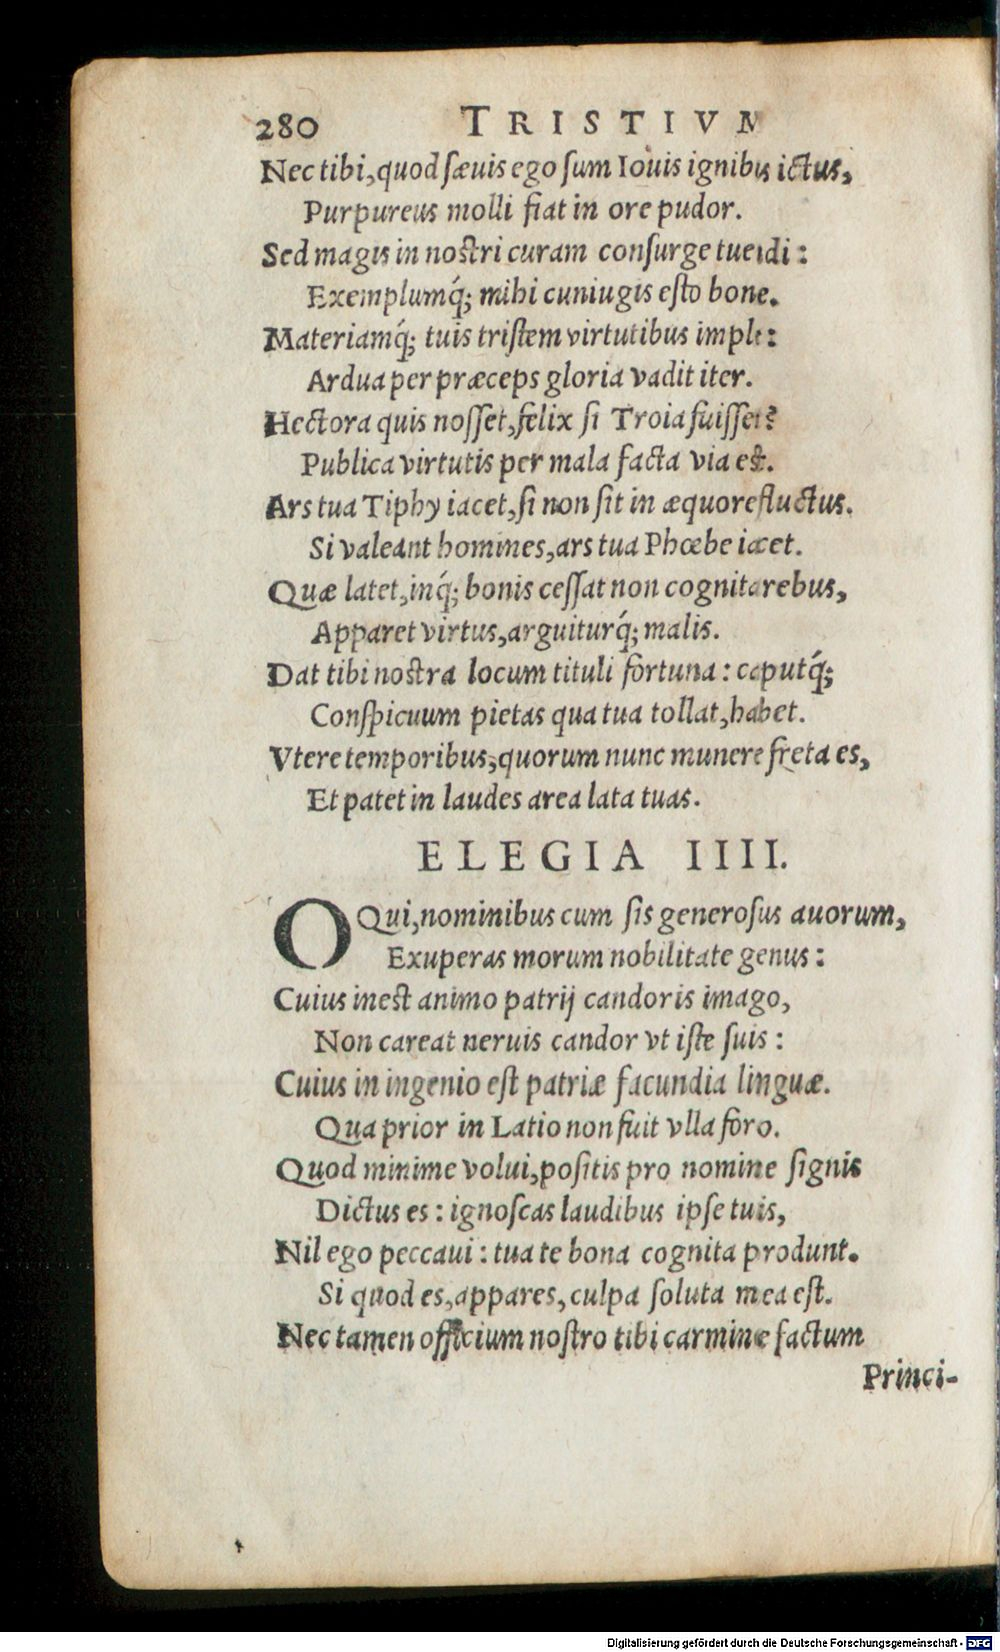 280 TRISTIVM
Nec tibi, quod sæuis ego sum Iouis ignibus ictus,
Purpureus molli fiat in ore pudor.
Sed magis in nostri curam consurge tuendi:
Exemplumq́; mihi cuniugis esto bone.
Materiamq́; tuis tristem virtutibus imple:
Ardua per præceps gloria vadit iter.
Hectora quis nosset, felix si Troia fuisset?
Publica virtutis per mala facta via est.
Ars tua Tiphy iacet, si non sit in æquore fluctus.
Si valeant homines, ars tua Phœbe iacet.
Quæ latet, inq́; bonis cessat non cognita rebus,
Apparet virtus, arguiturq́; malis.
Dat tibi nostra locum tituli fortuna: caputq́;
Conspicuum pietas qua tua tollat, habet.
Vtere temporibus, quorum nunc munere freta es,
Et patet in laudes area lata tuas.
ELEGIA IIII.
O Qui, nominibus cum sis generosus auorum,
Exuperas morum nobilitate genus:
Cuius inest animo patrij candoris imago,
Non careat neruis candor vt iste suis:
Cuius in ingenio est patriæ facundia linguæ.
Qua prior in Latio non fuit vlla foro.
Quod minime volui, positis pro nomine signis
Dictus es: ignoscas laudibus ipse tuis,
Nil ego peccaui: tua te bona cognita produnt.
Si quod es, appares, culpa soluta mea est.
Nec tamen officium nostro tibi carmine factum
Princi-
Digitalisierung gefördert durch die Deutsche Forschungsgemeinschaft - DFG